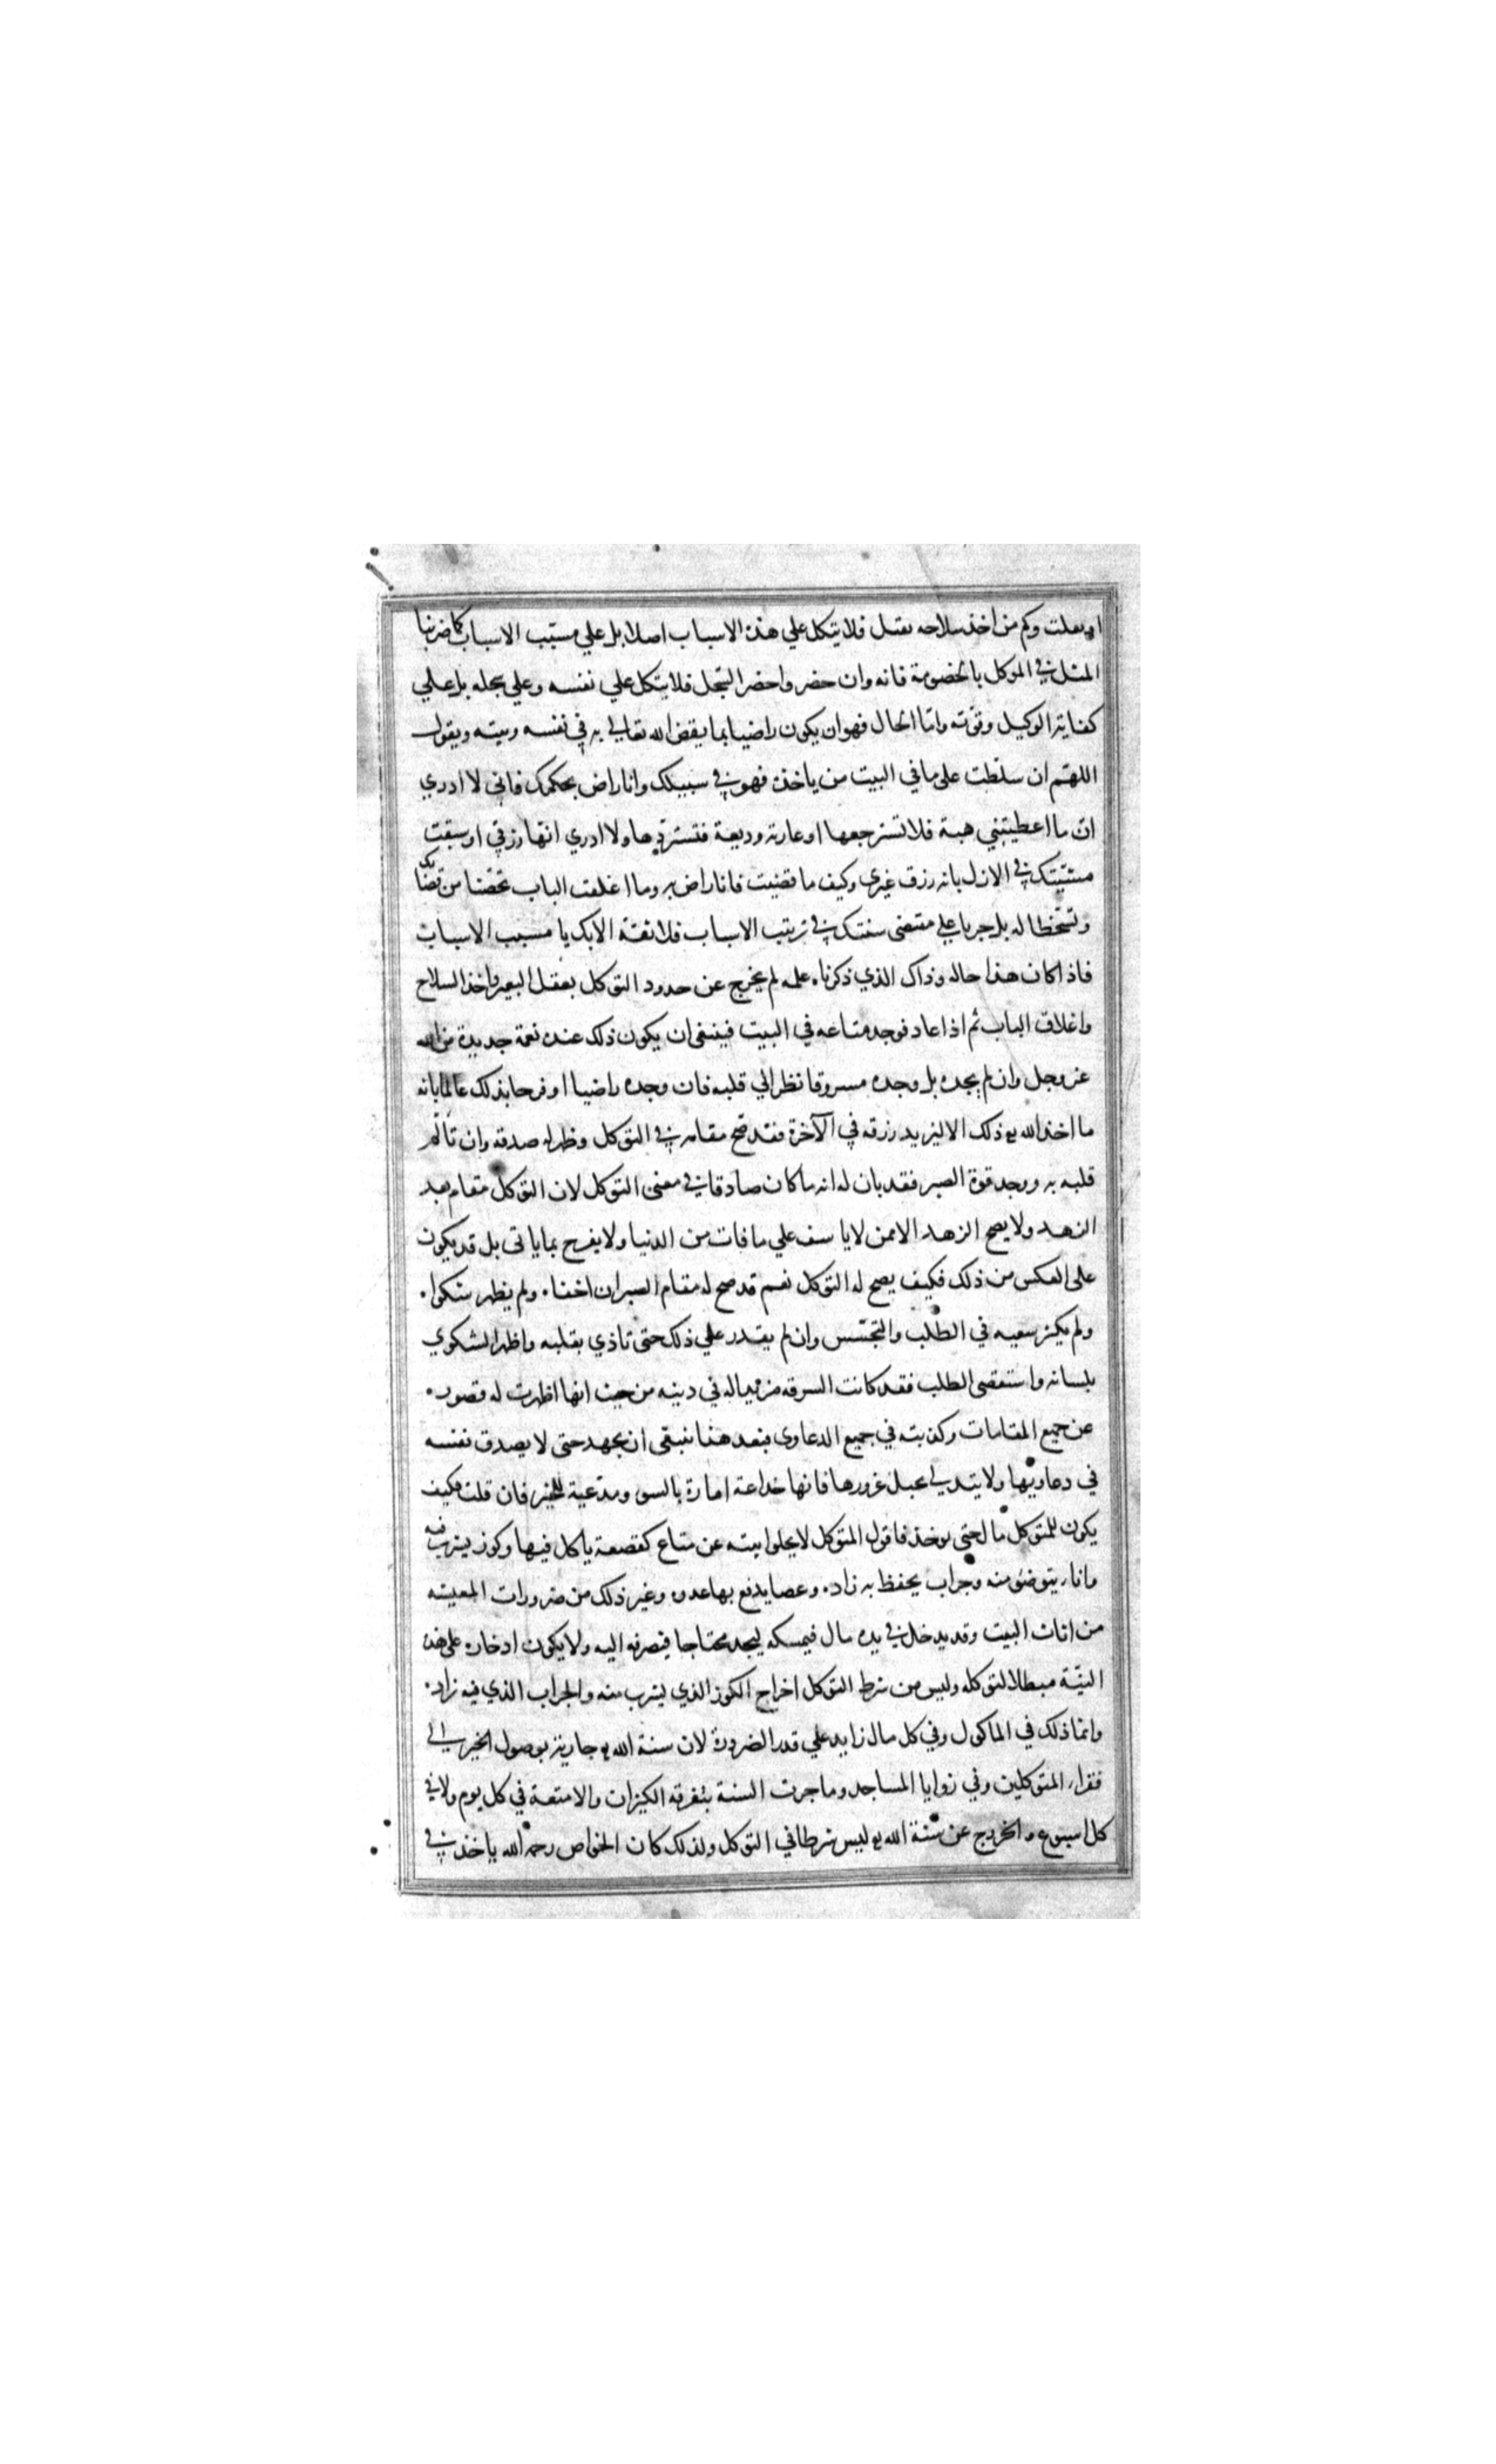 او يفلت وكم من اخذ سلاحه يقتل فلا يتكل علي هذه الاسباب اصلا بل علي مسبب الاسباب كما ضربنا
المثل في الموكل بالخصومة فانه وان حضر واحضر السّجل فلا يتكل علي نفسه وعلي سجله بل علي
كفاية الوكيل وقوّته وامّا الحال فهو ان يكون راضيا بما يقضي الله تعالي به في نفسه وبيته ويقول
اللهمّ ان سلّطت على ما في البيت من ياخذه فهو في سبيلك وانا راض بحكمك فاني لا ادري
انّ ما اعطيتني هبة فلا تسترجعها او عارية وديعة فتستردّها ولا ادري انّها رزقي او سبقت
مشيّتك في الازل بانه رزق غيري وكيف ما قضيت فانا راض به وما اغلقت الباب تحصّنا من قضائك
وتسخّطا له بل جريا علي مقتضى سنتك في ترتيب الاسباب فلا ثقة الا بك يا مسبب الاسباب
فاذا كان هذا حاله وذاك الذي ذكرناه علمه لم يخرج عن حدود التوكل بعقل البعير واخذ السلاح
واغلاق الباب ثم اذا عاد فوجد متاعه في البيت فينبغى ان يكون ذلك عنده نعمة جديدة من الله
عز وجل وان لم يجده بل وجده مسروقا نظر الي قلبه فان وجده راضيا او فرحا بذلك عالما بانه
ما اخذ الله تع ذلك الا ليزيد رزقه في الآخرة فقد صّح مقامه في التوكل وظهر له صدقه وان تألّم
قلبه به ووجد قوة الصبر فقد بان له انه ما كان صادقا في معنى التوكل لان التوكل مقام بعد
الزهد ولا يصح الزهد الا ممن لا ياسف علي ما فات من الدنيا ولا يفرح بما ياتى بل قد يكون
على العكس من ذلك فكيف يصح له التوكل نعم قد صح له مقام الصبر ان اخفاه ولم يظهر شكواه
ولم يكثر سعيه في الطلب والتجسّس وان لم يقدر علي ذلك حتى تاذي بقلبه واظهر الشكوي
بلسانه واستقصى الطلب فقد كانت السرقه مزيدا له في دينه من حيث انها اظهرت له قصوره
عن جميع المقامات وكذبته في جميع الدعاوى فبعد هذا ينبغى ان يجهد حتى لا يصدق نفسه
في دعاويها ولا يتدلى بحبل غرورها فانها خداعة امارة بالسو ومدّعية للخير فان قلت فكيف
يكون للمتوكل مال حتى يوخذ فاقول المتوكل لا يخلوا بيته عن متاع كقصعة ياكل فيها وكوز يشرب فيه
واناء يتوضئ منه وجراب يحفظ به زاده وعصا يدفع بها عدوه وغير ذلك من ضرورات المعيشه
من اثاث البيت وقد يدخل في يده مال فيمسكه ليجد محتاجا فيصرفه اليه ولا يكون ادخاره على هذه
النيّة مبطلا لتوكله وليس من شرط التوكل اخراج الكوز الذي يشرب منه والجراب الذي فيه زاده
وانّما ذلك في الماكول وفي كل مال زايد علي قدر الضرورة لان سنة الله تع جارية بوصول الخير الى
فقراء المتوكلين وفي زوايا المساجد وما جرت السنة بتفرقه الكيزان والامتعة في كل يوم ولا في
كل اسبوع والخروج عن سّنة الله تع ليس شرطا في التوكل ولذلك كان الخواص رحمه الله ياخذ في